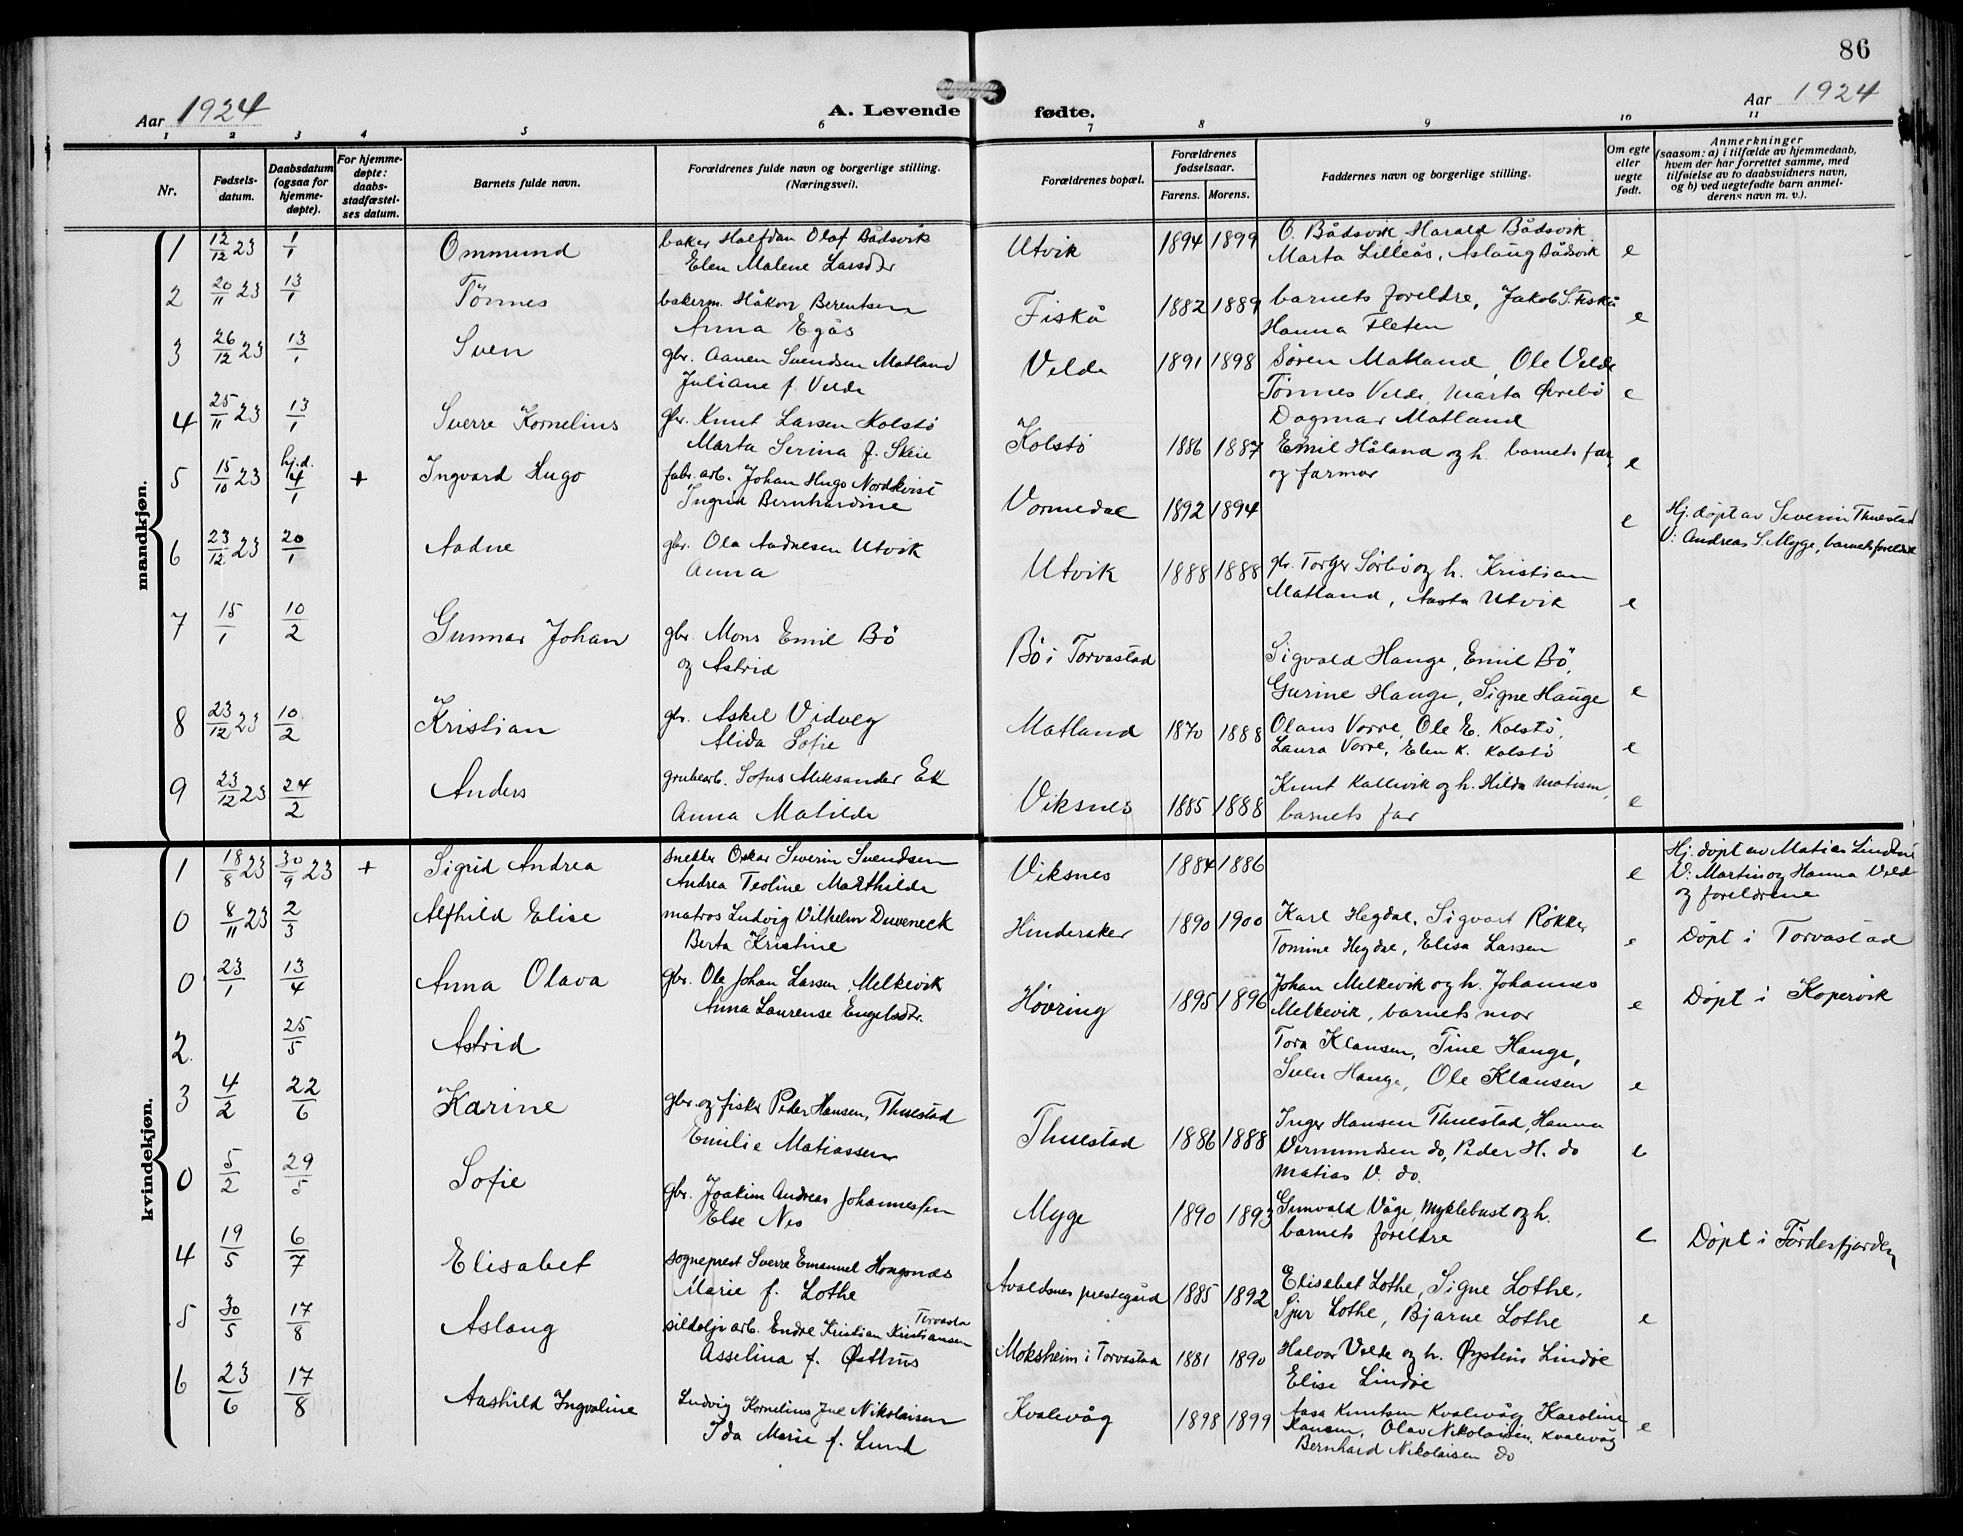 86
Aar 1924
A. Levende fødte.
Aar 1924
1 2 3 4 5 6 7 8 9 10 11
Nr.
Fødsels-datum.
Daabsdatum (ogsaa for hjemme-døpte).
For hjemme-døpte: daabs-stadfæstel-ses datum.
Barnets fulde navn.
Forældrenes fulde navn og borgerlige stilling. (Næringsvei).
Forældrenes bopæl.
Forældrenes fødselsaar.
Farens. Morens.
Faddernes navn og borgerlige stilling.
Om egte eller uegte født.
Anmerkninger (saasom: a) i tilfælde av hjemmedaab, hvem der har forrettet samme, med tilføielse av to daabsvidners navn, og b) ved uegtefødte barn anmel-derens navn m. v.).
mandkjøn.
1 12/12 23 1/1 Ommund baker Halfdan Olaf Bådsvik Utvik 1894 1899 O. Bådsvik Harald Bådsvik
Elen Malene Larsdtr Marta Lilleås, Aslaug Bådsvik e
2 20/11 23 13/1 Tönnes bakerm. Håkon Berentsen Fiskå 1882 1889 barnets foreldre, Jakob S. Fiskå
Anna Egås Hanna Fleten e
3 26/12 23 13/1 Sven gbr. Aanen Svendsen Matland Velde 1891 1898 Søren Matland, Ole Velde
Juliane f. Velde Tönnes Velde, Marta Øvrebö e
Dagmar Matland
4 25/11 23 13/1 Sverre Kornelius gbr. Knut Larsen Kolstö Kolstö 1886 1887 Emil Håland og h. barnets far,
Marta Serina f. Skeie og farmor e
5 15/10 23 hj.d. 4/1 + Ingvard Hugo fabr. arb. Johan Hugo Nordkvist Vormedal 1892 1894 e Hj. døpt av Severin Thuestad
Ingrid Bernhardine V: Andreas S. Myge, barnets foreldre
6 23/12 23 20/1 Aadne gbr. Ola Aadnesen Utvik Utvik 1888 1888 gbr. Torger Sörbö og h. Kristian
Anna Matland, Aasta Utvik e
7 15/1 10/2 Gunnar Johan gbr. Mons Emil Bö Bö i Torvastad Sigvald Hauge, Emil Bö,
og Astrid Gurine Hauge, Signe Hauge e
8 23/12 23 10/2 Kristian gbr. Askel Vidveg Matland 1870 1888 Olaus Vorre, Ole E. Kolstö,
Alida Sofie Laura Vorre, Elen K. Kolstö e
9 23/12 23 24/2 Anders grubearb. Sofus Aleksander Ek Viksnes 1885 1888 Knut Kallevik og h. Hilda Matisen,
Anna Matilde barnets far e
kvindekjøn.
1 18/8 23 30/9 23 + Sigrid Andrea snekker Oskar Severin Svendsen Viksnes 1884 1886 e Hj. døpt av Matias
Andrea Teoline Marthilde V: Martin og Hanna
og foreldrene
0 8/11 23 2/3 Alfhild Elise matros Ludvig Vilhelm Duveneck Hinderaker 1890 1900 Karl Hegdal, Sigvart Røkke,
Berta Kristine Tomine Hegdal, Elisa Larsen e Døpt i Torvastad
0 23/1 13/4 Anna Olava gbr. Ole Johan Larsen Melkevik Hövring 1895 1896 Johan Melkevik og h. Johannes
Anna Laurense Melkevik, barnets mor e Døpt i Kopervik
2 25/5 Astrid Tora Klausen, Tine Hauge,
Sven Hauge, Ole Klausen e
3 4/2 22/6 Karine gbr. og fisker Peder Hansen, Thuestad Thuestad 1886 1888 Inger Hansen Thuestad, Hanna
Emilie Matiassen Vermundsen do, Peder H. do e
Matias V. do.
0 5/2 29/5 Sofie gbr. Joakim Andreas Johannessen Myge 1890 1893 Gunvald Våge, Myklebust og h.
Else Nes barnets foreldre e Døpt i Fördesfjorden
4 19/5 6/7 Elisabet sogneprest Sverre Emanuel Hougsnæs Avaldsnes prestegård 1885 1892 Elisabet Lothe, Signe Lothe,
Marie f. Lothe Sjur Lothe, Bjarne Lothe e
5 30/5 17/8 Aslaug sildoljearb. Endre Kristian Kristiansen Torvasta Moksheim i Torvastad 1881 1890 Halvor Velde og h. Øystein Lindöe
Asselina f. Østhus Elise Lindöe
6 23/6 17/8 Aashild Ingvaline Ludvig Kornelius Jul Nikolaisen Kvalevåg 1898 1899 Aasa Knutsen Kvalevåg Karoline
Ida Marie f. Lund Hansen, Olav Nikolaisen, Kvalevåg e
Bernhard Nikolaisen do